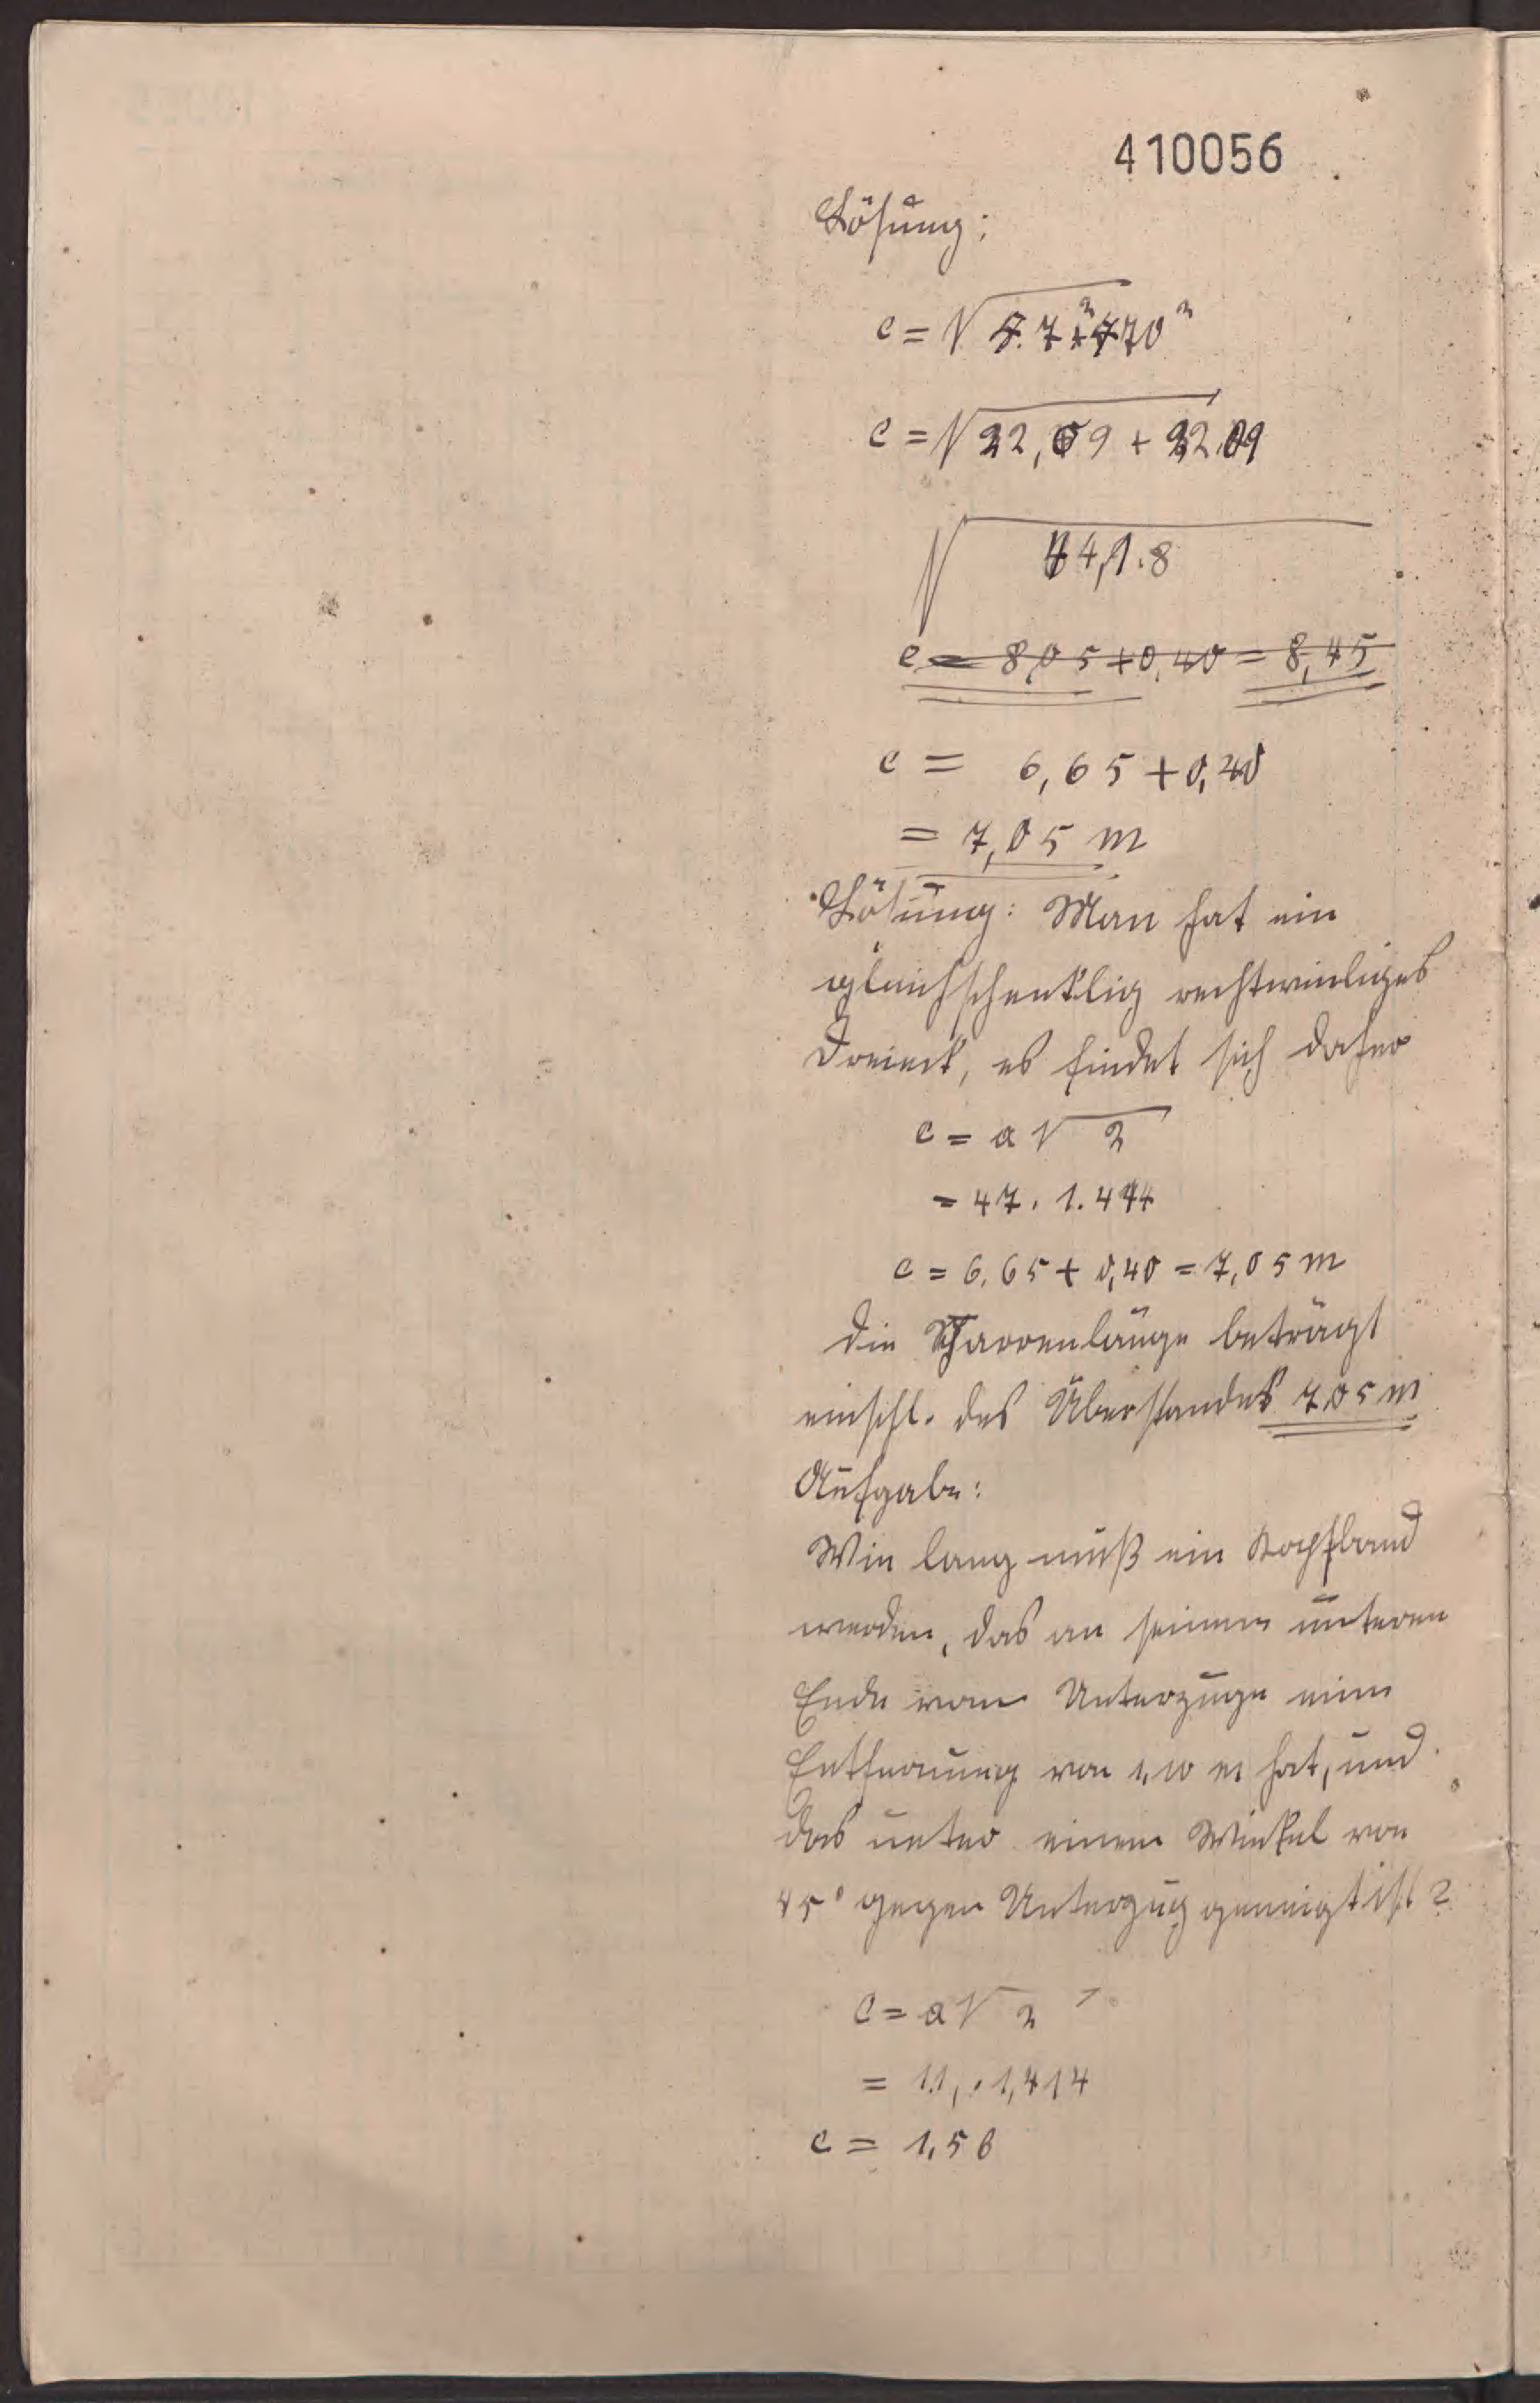 410056
Lösung:
c = √4.7² + 4.70²
c = √22,09 + 22,09
√44,1.8
c = 8,05 + 0,40 = 8,45
c = 6,65 + 0,40
= 7,05 m
Lösung: Man hat ein
gleichschenklig rechtwinliges
Dreieck, es findet sich daher
c = a √2
= 47 . 1.414
c = 6,65 + 0,40 = 7,05 m
Die Sparrenlänge beträgt
einschl. des Überstandes 7,05 m
Aufgabe:
Wie lang muß ein Kopfband
werden, das an seinem unteren
Ende vom Unterzuge eine
Entfernung von 1,10 m hat, und
das unter einem Winkel von
45° gegen Unterzug geneigt ist?
c = a √2
= 1.1, . 1,414
c = 1,56